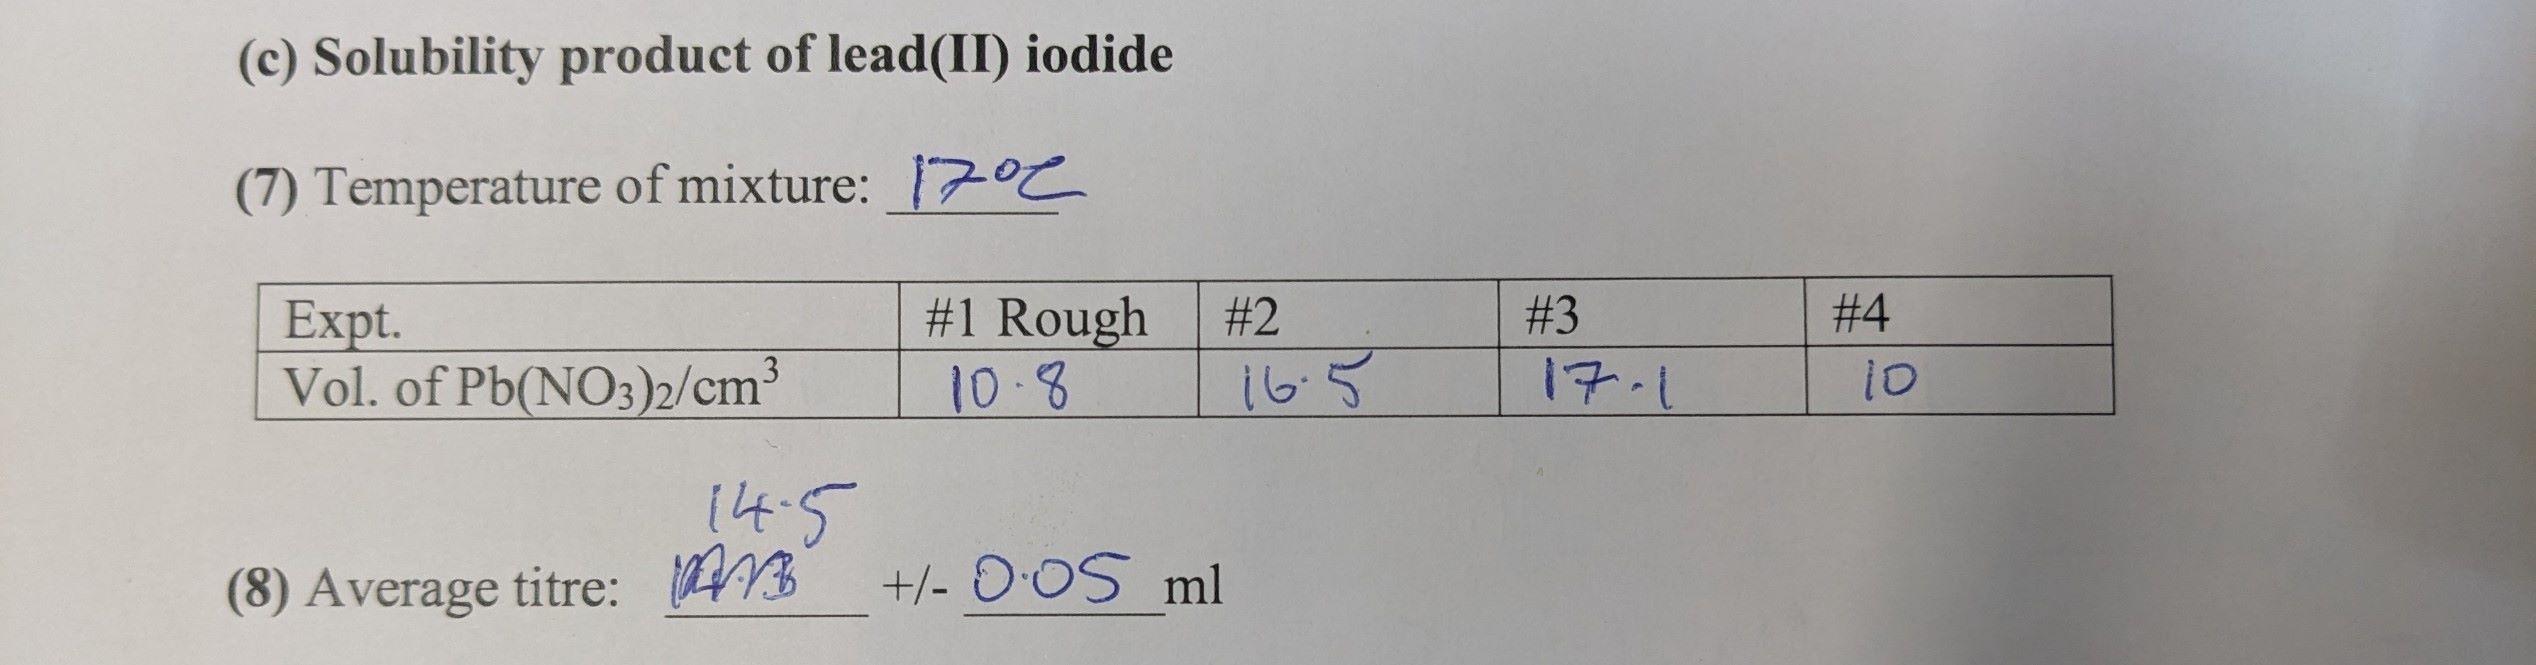 (c) Solubility product of lead(II) iodide
(7) Temperature of mixture: 17°C
Expt. #1 Rough #2 #3 #4
Vol. of Pb(NO₃)₂/cm³ 10.8 16.5 17.1 10
14.5
(8) Average titre: +/- 0.05 ml